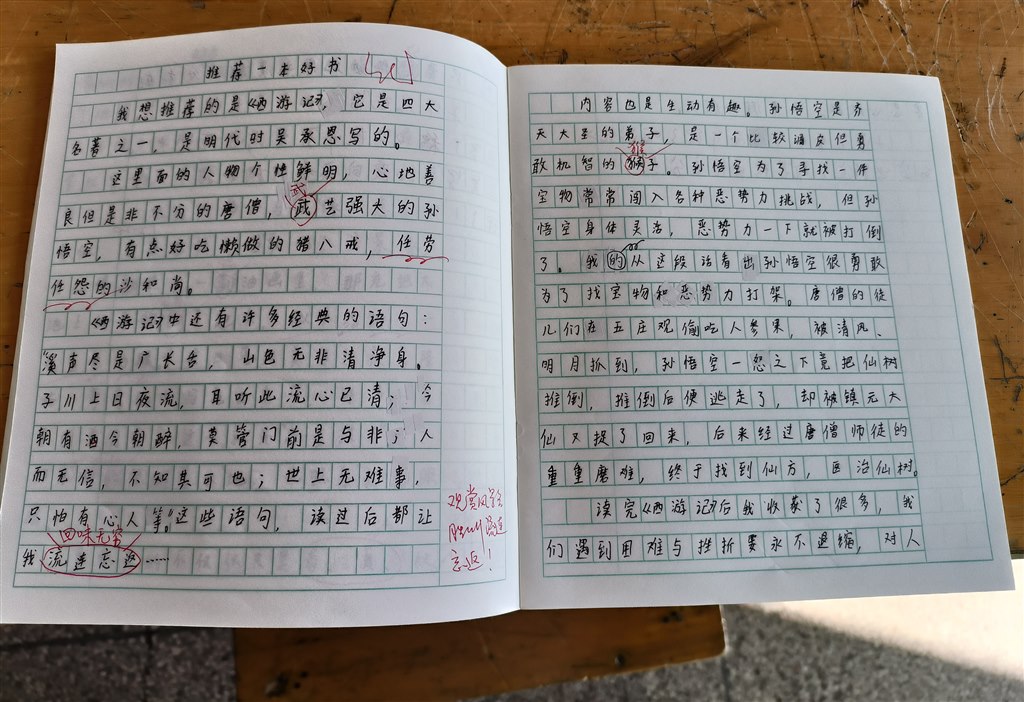 推荐一本好书
我想推荐的是《西游记》，它是四大
名著之一，是明代时吴承恩写的。
这里面的人物个性鲜明，心地善
良但是非不分的唐僧，武艺强大的孙
武
悟空，有点好吃懒做的猪八戒，任劳
任怨的沙和尚。
《西游记》中还有许多经典的语句：
“溪声尽是广长舌，山色无非清净身。
子川上日夜流，耳听此流心已清；今
朝有酒今朝醉，莫管门前是与非；人
而无信，不知其可也；世上无难事，
只怕有心人等。”这些语句，读过后都让
回味无穷
我流连忘返……
观赏风景
流连
忘返！
内容也是生动有趣。孙悟空是齐
天大圣的弟子，是一个比较调皮但勇
敢机智的猴子。孙悟空为了寻找一件
猴
宝物常常闯入各种恶势力挑战，但孙
悟空身体灵活，恶势力一下就被打倒
了。我的从这段话看出孙悟空很勇敢
为了找宝物和恶势力打架。唐僧的徒
儿们在五庄观偷吃人参果，被清风、
明月抓到，孙悟空一怒之下竟把仙树
推倒，推倒后便逃走了，却被镇元大
仙又捉了回来，后来经过唐僧师徒的
重重磨难，终于找到仙方，医治仙树。
读完《西游记》后我收获了很多，我
们遇到困难与挫折要永不退缩，对人